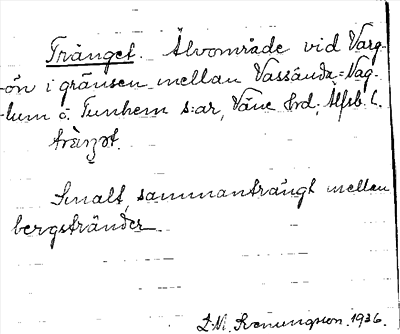 Trånget. Älvområde vid Varg-
-ön i gränsen mellan Vassända-Nag-
-lum o. Tunhem s:ar, Väne hrd, Älfsb. l.
Smalt, sammanträngt mellan
bergstränder.
D.N. Svenungsson 1936.